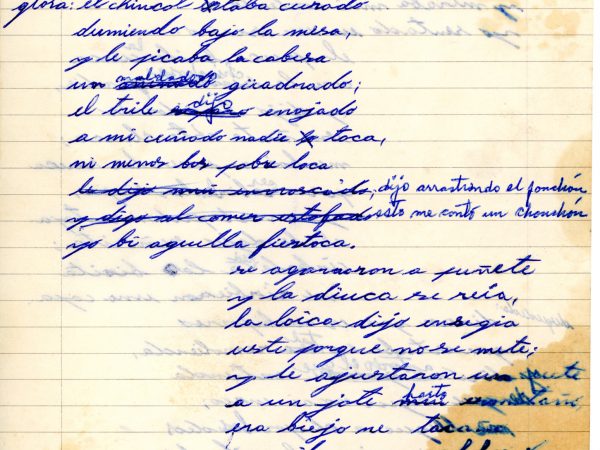 glosa: el chincol estaba curado
durmiendo bajo la mesa,
y le picaba la cabesa
un maldadoso güadrado;
el trile dijo enojado
a mi cuñado nadie lo toca,
ni menos bos pobre loca
le dijo muy enroscado, dijo arrastrando el ponchón
y digo al comer estofado esto me contó un chonchón
yo bi aquella fiertoca.
se agararon a puñete
y la diuca se reía,
la loica dijo ensegia
uste porque no se mete;
y le ajustaron un
a un jote
era biejo ne